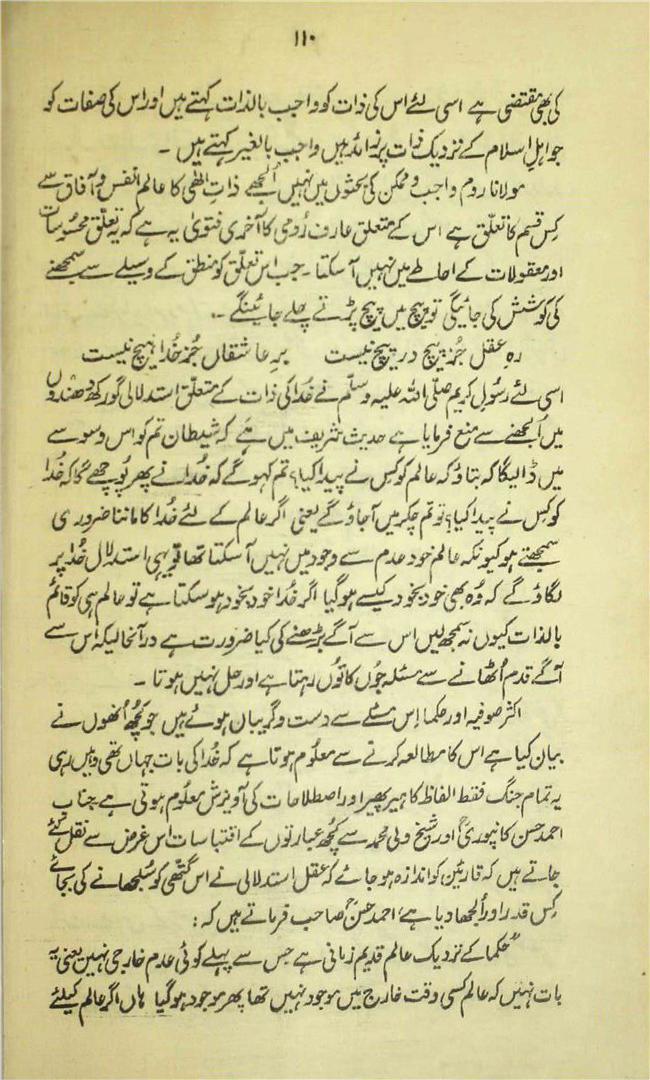 ۱۱۰
کی بھی مقتضی ہے اسی لئے اس کی ذات کو واجب بالذات کہتے ہیں اور اس کی صفات کو
جو اہلِ اسلام کے نزدیک ذات پر زائد ہیں واجب بالغیر کہتے ہیں ۔
مولانا روم واجب و ممکن کی بحثوں میں نہیں اُلجھے ذاتِ الٰہی کا عالم انفس و آفاق سے
کس قسم کا تعلّق ہے اس کے متعلق عارف رُومی کا آخری فتویٰ یہ ہے کہ یہ تعلّق محسُوسات
اور معقولات کے احاطے میں نہیں آ سکتا ۔ جب اس تعلّق کو منطق کے وسیلے سے سمجھنے
کی کوشش کی جائیگی تو پیچ میں پیچ پڑتے چلے جائینگے ۔
رہِ عقل جُز پیچ در پیچ نیست برِ عاشقاں جُز خُدا ہیچ نیست
اسی لئے رسُولِ کریم صلّی اللہ علیہ وسلّم نے خُدا کی ذات کے متعلّق استدلالی گورکھ دھندوں
میں اُلجھنے سے منع فرمایا ہے حدیث شریف میں ہے کہ شیطان تم کو اس وسوسے
میں ڈالیگا کہ بتاؤ کہ عالم کو کس نے پیدا کیا؟ تم کہو گے کہ خُدا نے پھر پُوچھے گا کہ خُدا
کو کِس نے پیدا کیا؟ تو تم چکر میں آ جاؤ گے یعنی اگر عالم کے لئے خُدا کا ماننا ضروری
سمجھتے ہو کیونکہ عالم خود عدم سے وجود میں نہیں آ سکتا تھا تو یہی استدلال خُدا پر
لگاؤ گے کہ وُہ بھی خود بخود کیسے ہو گیا اگر خُدا خود بخود ہو سکتا ہے تو عالم ہی کو قائم
بالذات کیوں نہ سمجھ لیں اس سے آگے بڑھنے کی کیا ضرورت ہے درآنحالیکہ اس سے
آگے قدم اُٹھانے سے مسئلہ جُوں کا تُوں رہتا ہے اور حل نہیں ہوتا ۔
اکثر صوفیہ اور حکما اِس مسئلے سے دست و گریبان ہوئے ہیں جو کُچھ اُنھوں نے
بیان کیا ہے اس کا مطالعہ کرنے سے معلُوم ہوتا ہے کہ خُدا کی بات جہاں تھی وہیں رہی
یہ تمام جنگ فقط الفاظ کا ہیر پھیر اور اصطلاحات کی آویزش معلُوم ہوتی ہے جناب
احمد حسن کانپوری اور شیخ ولی محمد سے کُچھ عبارتوں کے اقتباسات اس غرض سے نقل کئے
جاتے ہیں کہ قارئین کو اندازہ ہو جائے کہ عقل استدلالی نے اس گتھی کو سُلجھانے کی بجائے
کِس قدر اور اُلجھا دیا ہے، احمد حسن صاحب فرماتے ہیں کہ:
"حکما کے نزدیک عالم قدیم زمانی ہے جس سے پہلے کوئی عدم خارجی نہیں یعنی یہ
بات نہیں کہ عالم کسی وقت خارج میں موجود نہیں تھا پھر موجود ہو گیا ہاں اگر عالم کیلئے